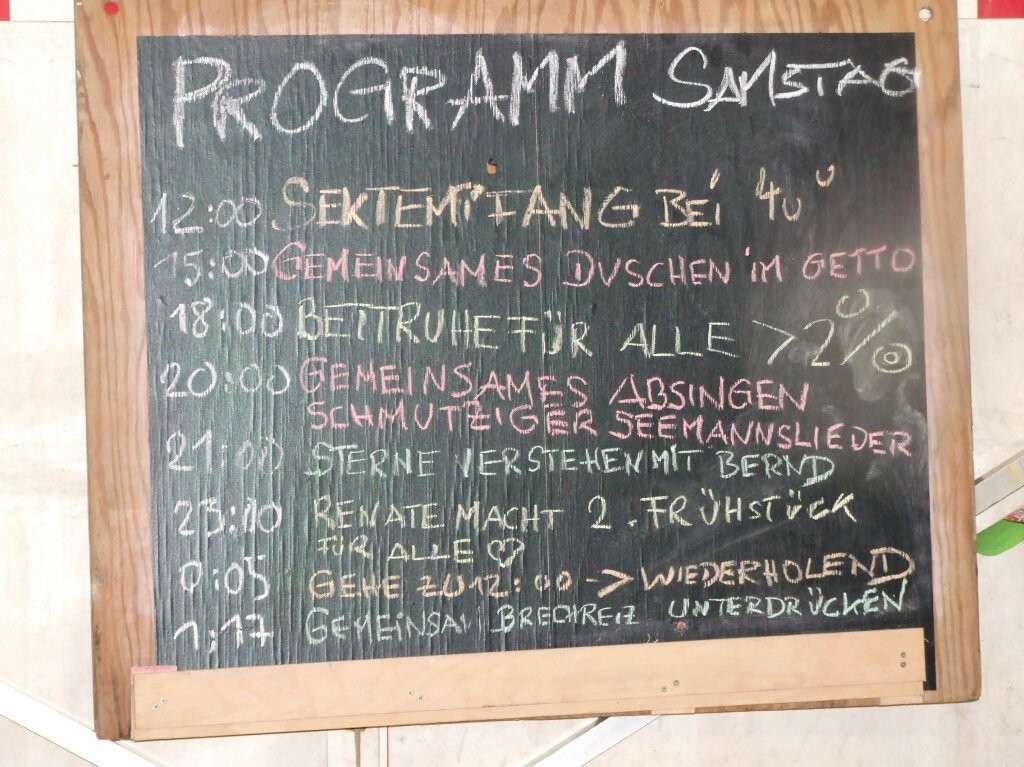 PROGRAMM SAMSTAG
12:00 SEKTEMPFANG BEI 4U
15:00 GEMEINSAMES DUSCHEN IM GETTO
18:00 BETTRUHE FÜR ALLE >2%
20:00 GEMEINSAMES ABSINGEN
SCHMUTZIGER SEEMANNSLIEDER
21:00 STERNE VERSTEHEN MIT BERND
23:10 RENATE MACHT 2. FRÜHSTÜCK
FÜR ALLE ♡
0:05 GEHE ZU 12:00 -> WIEDERHOLEND
1;17 GEMEINSAM BRECHREIZ UNTERDRÜCKEN